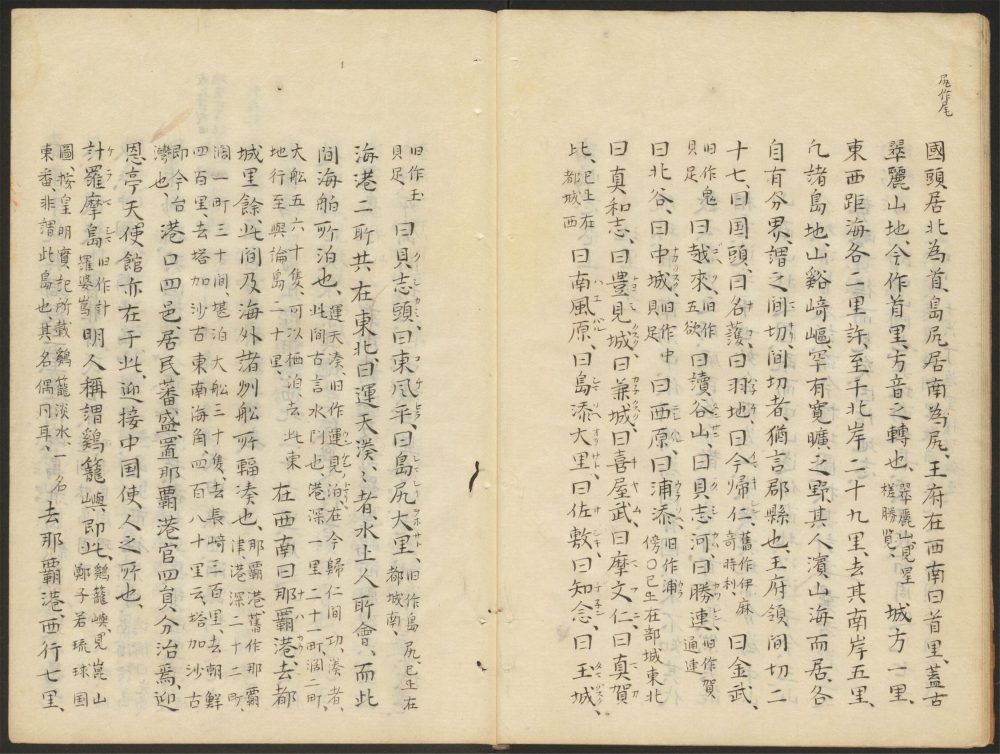 尻作尾
國頭居北為首、島尻居南為尻、王府在西南曰首里、蓋古
翠麗山地、今作首里、方音之轉也、翠麗山見星槎勝覧、城方一里、
東西距海各二里許、至于北岸二十九里、去其南岸五里、
凢諸島地、山谿﨑嶇、罕有寛曠之野、其人濱山海而居、各
自有分界、謂之間切、間切者猶言郡縣也、王府領、間切二
十七、曰国頭、曰名護、曰羽地、曰今帰仁、舊作伊麻奇時利、曰金武、
旧作鬼、曰越來、旧作五欲、曰讀谷山、曰具志河、曰勝連、旧作賀通連
具足
曰北谷、曰中城、旧作中具足、曰西原、曰浦添、旧作浦傍〇已上在都城東北
曰真和志、曰豊見城、曰兼城、曰喜屋武、曰摩文仁、曰真賀
比、已上在都城西、曰南風原、曰島添大里、曰佐敷、曰知念、曰玉城、
旧作玉具足、曰具志頭、曰東風平、曰島尻大里、旧作島尻已上在都城南、
海港二所、共在東北、曰運天湊、湊者、水上人所會、而此
間海舶所泊也、運天湊、旧作運見泊、在今歸仁間切、湊者、此間古言水門也、港深一里二十一町、濶二町、
大船五六十隻、可以栖泊、云此東地行至與論島二十里、在西南曰那覇港、去都
城里餘、此間及海外諸州船所輻湊也、那覇港舊作那覇津、港深二十二町、
濶一町三十間、堪泊大船三十隻、去長﨑三百里、去朝鮮四百里、去塔加沙古東南海角、四百八十里云、塔加沙古
即今台灣也、港口四邑、居民蕃盛、置那覇港官四員分治焉、迎
恩亭天使館亦在于此、迎接中国使人之所也、
計羅摩島、旧作計羅婆島、明人稱謂鷄籠嶼即此、鷄籠嶼見崑山鄭子若琉球国
圖、按皇明實記所載鷄籠淡水、一名東番、非謂此島也、其名偶同耳、去那覇港、西行七里、